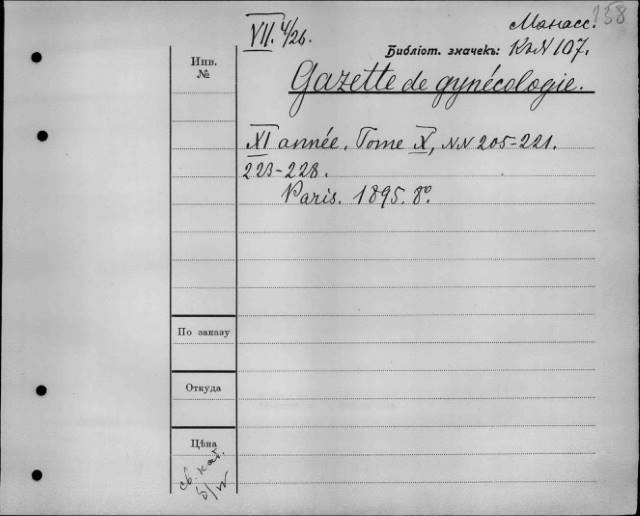 158
VII. 4/26.
Манасс.
Библіот. значекъ: К2N 107.
Инв. №
Gazette de gynécologie.
XI année. Tome X, NN 205-221.
223-228.
Paris. 1895. 8º.
По заказу
Откуда
Цѣна
св. кат.